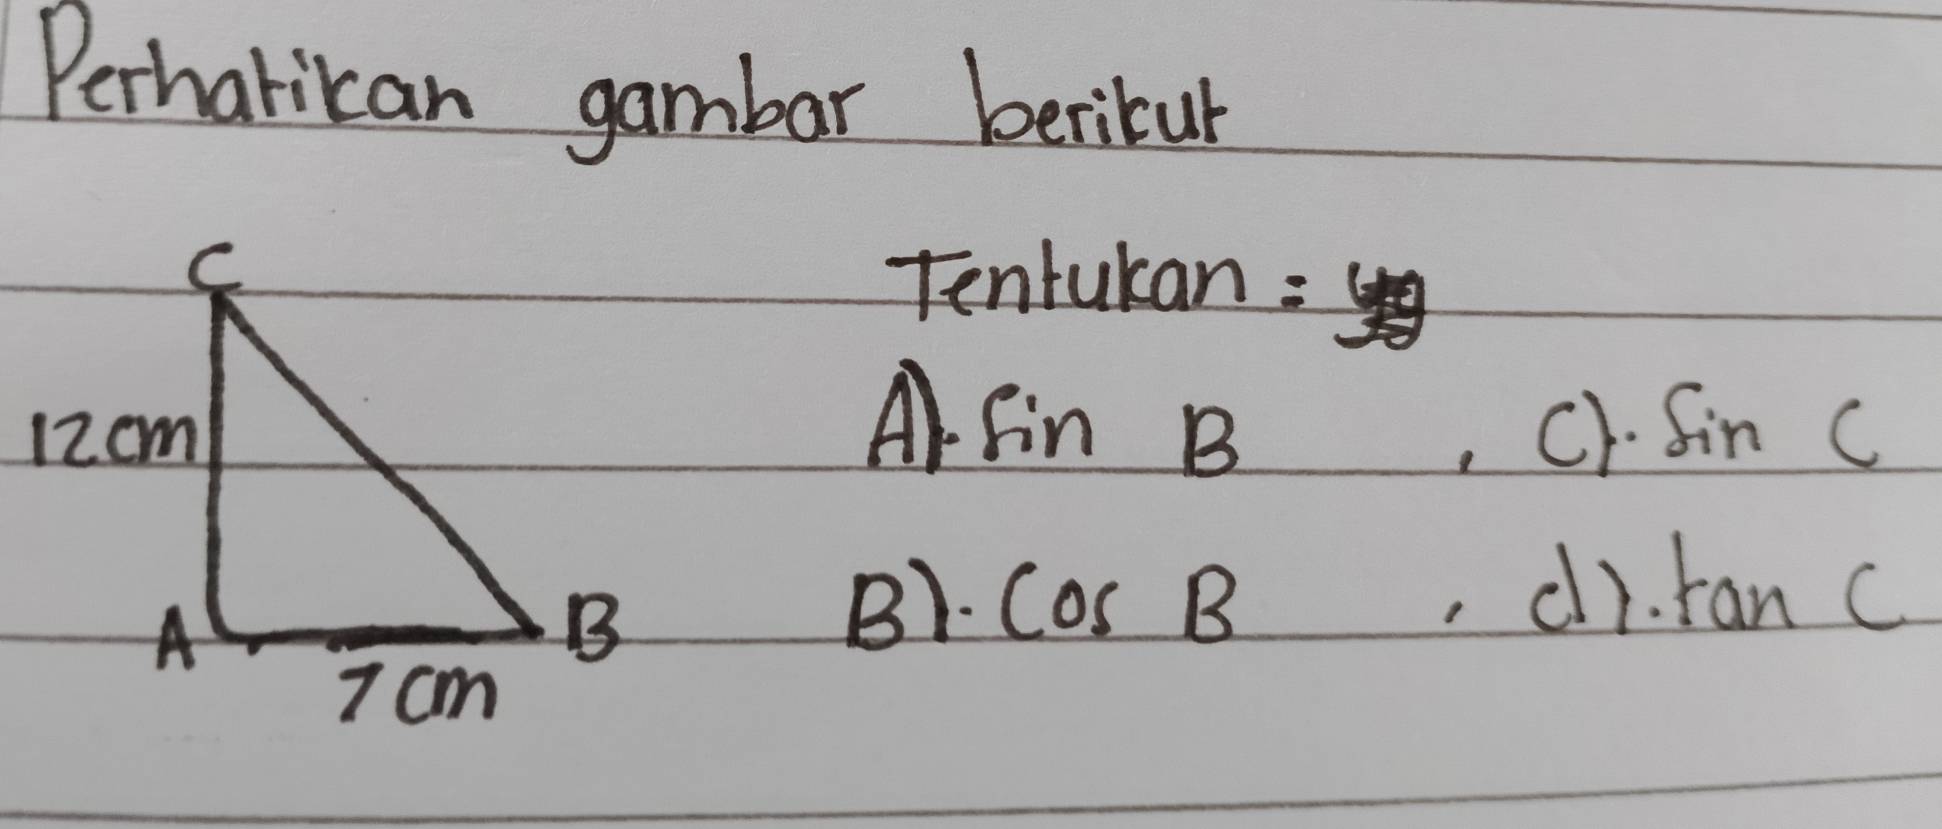 Perhatikan gambar berikut
C
Tentukan =
12cm
A). Sin B , C). Sin C
A B
B). Cos B , d). tan C
7 cm